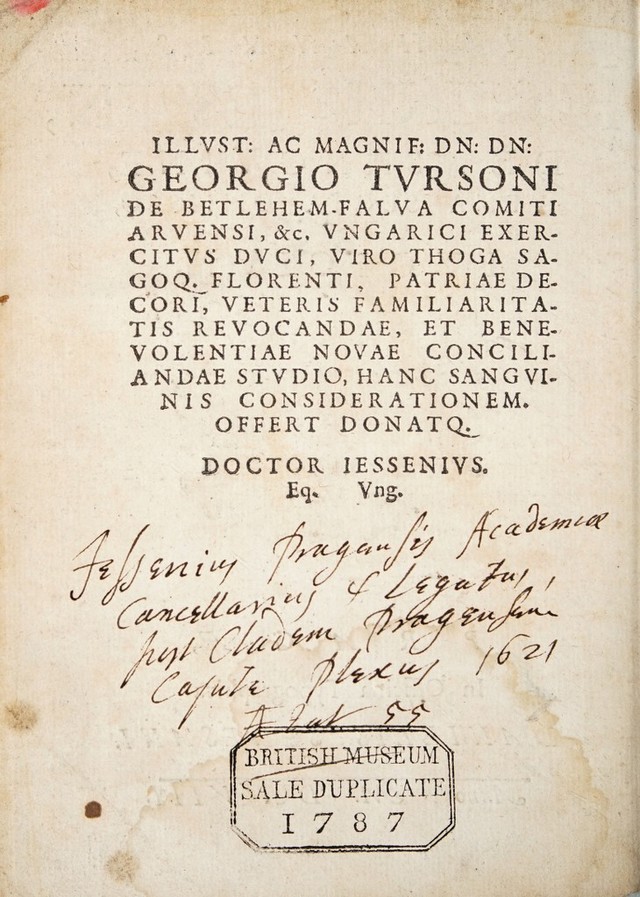 ILLVST: AC MAGNIF: DN: DN:
GEORGIO TVRSONI
DE BETLEHEM-FALVA COMITI
ARVENSI, &c. VNGARICI EXER-
CITVS DVCI, VIRO THOGA SA-
GOQ. FLORENTI, PATRIAE DE-
CORI, VETERIS FAMILIARITA-
TIS REVOCANDAE, ET BENE-
VOLENTIAE NOVAE CONCILI-
ANDAE STVDIO, HANC SANGVI-
NIS CONSIDERATIONEM.
OFFERT DONATQ.
DOCTOR IESSENIVS.
Eq. Vng.
Jessenius Pragensis Academiae
Cancellarius & Legatus,
post Cladem Pragensem
Capite plexus 1621
Aetat 55
BRITISH MUSEUM
SALE DUPLICATE
1787